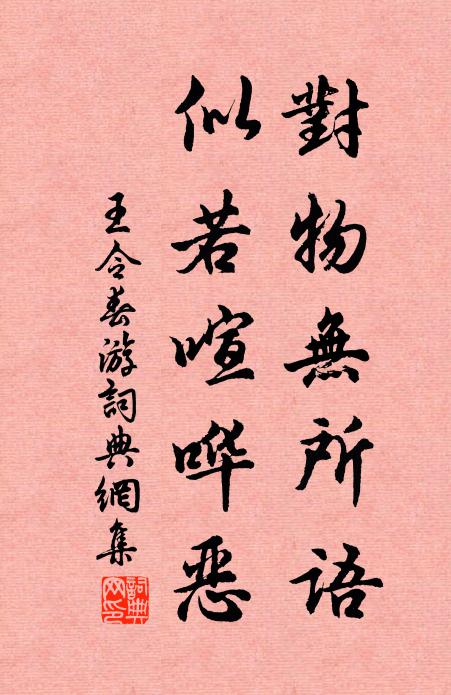 對物無所語
似若喧哗恶
王令春游詞典網集
詞典网印